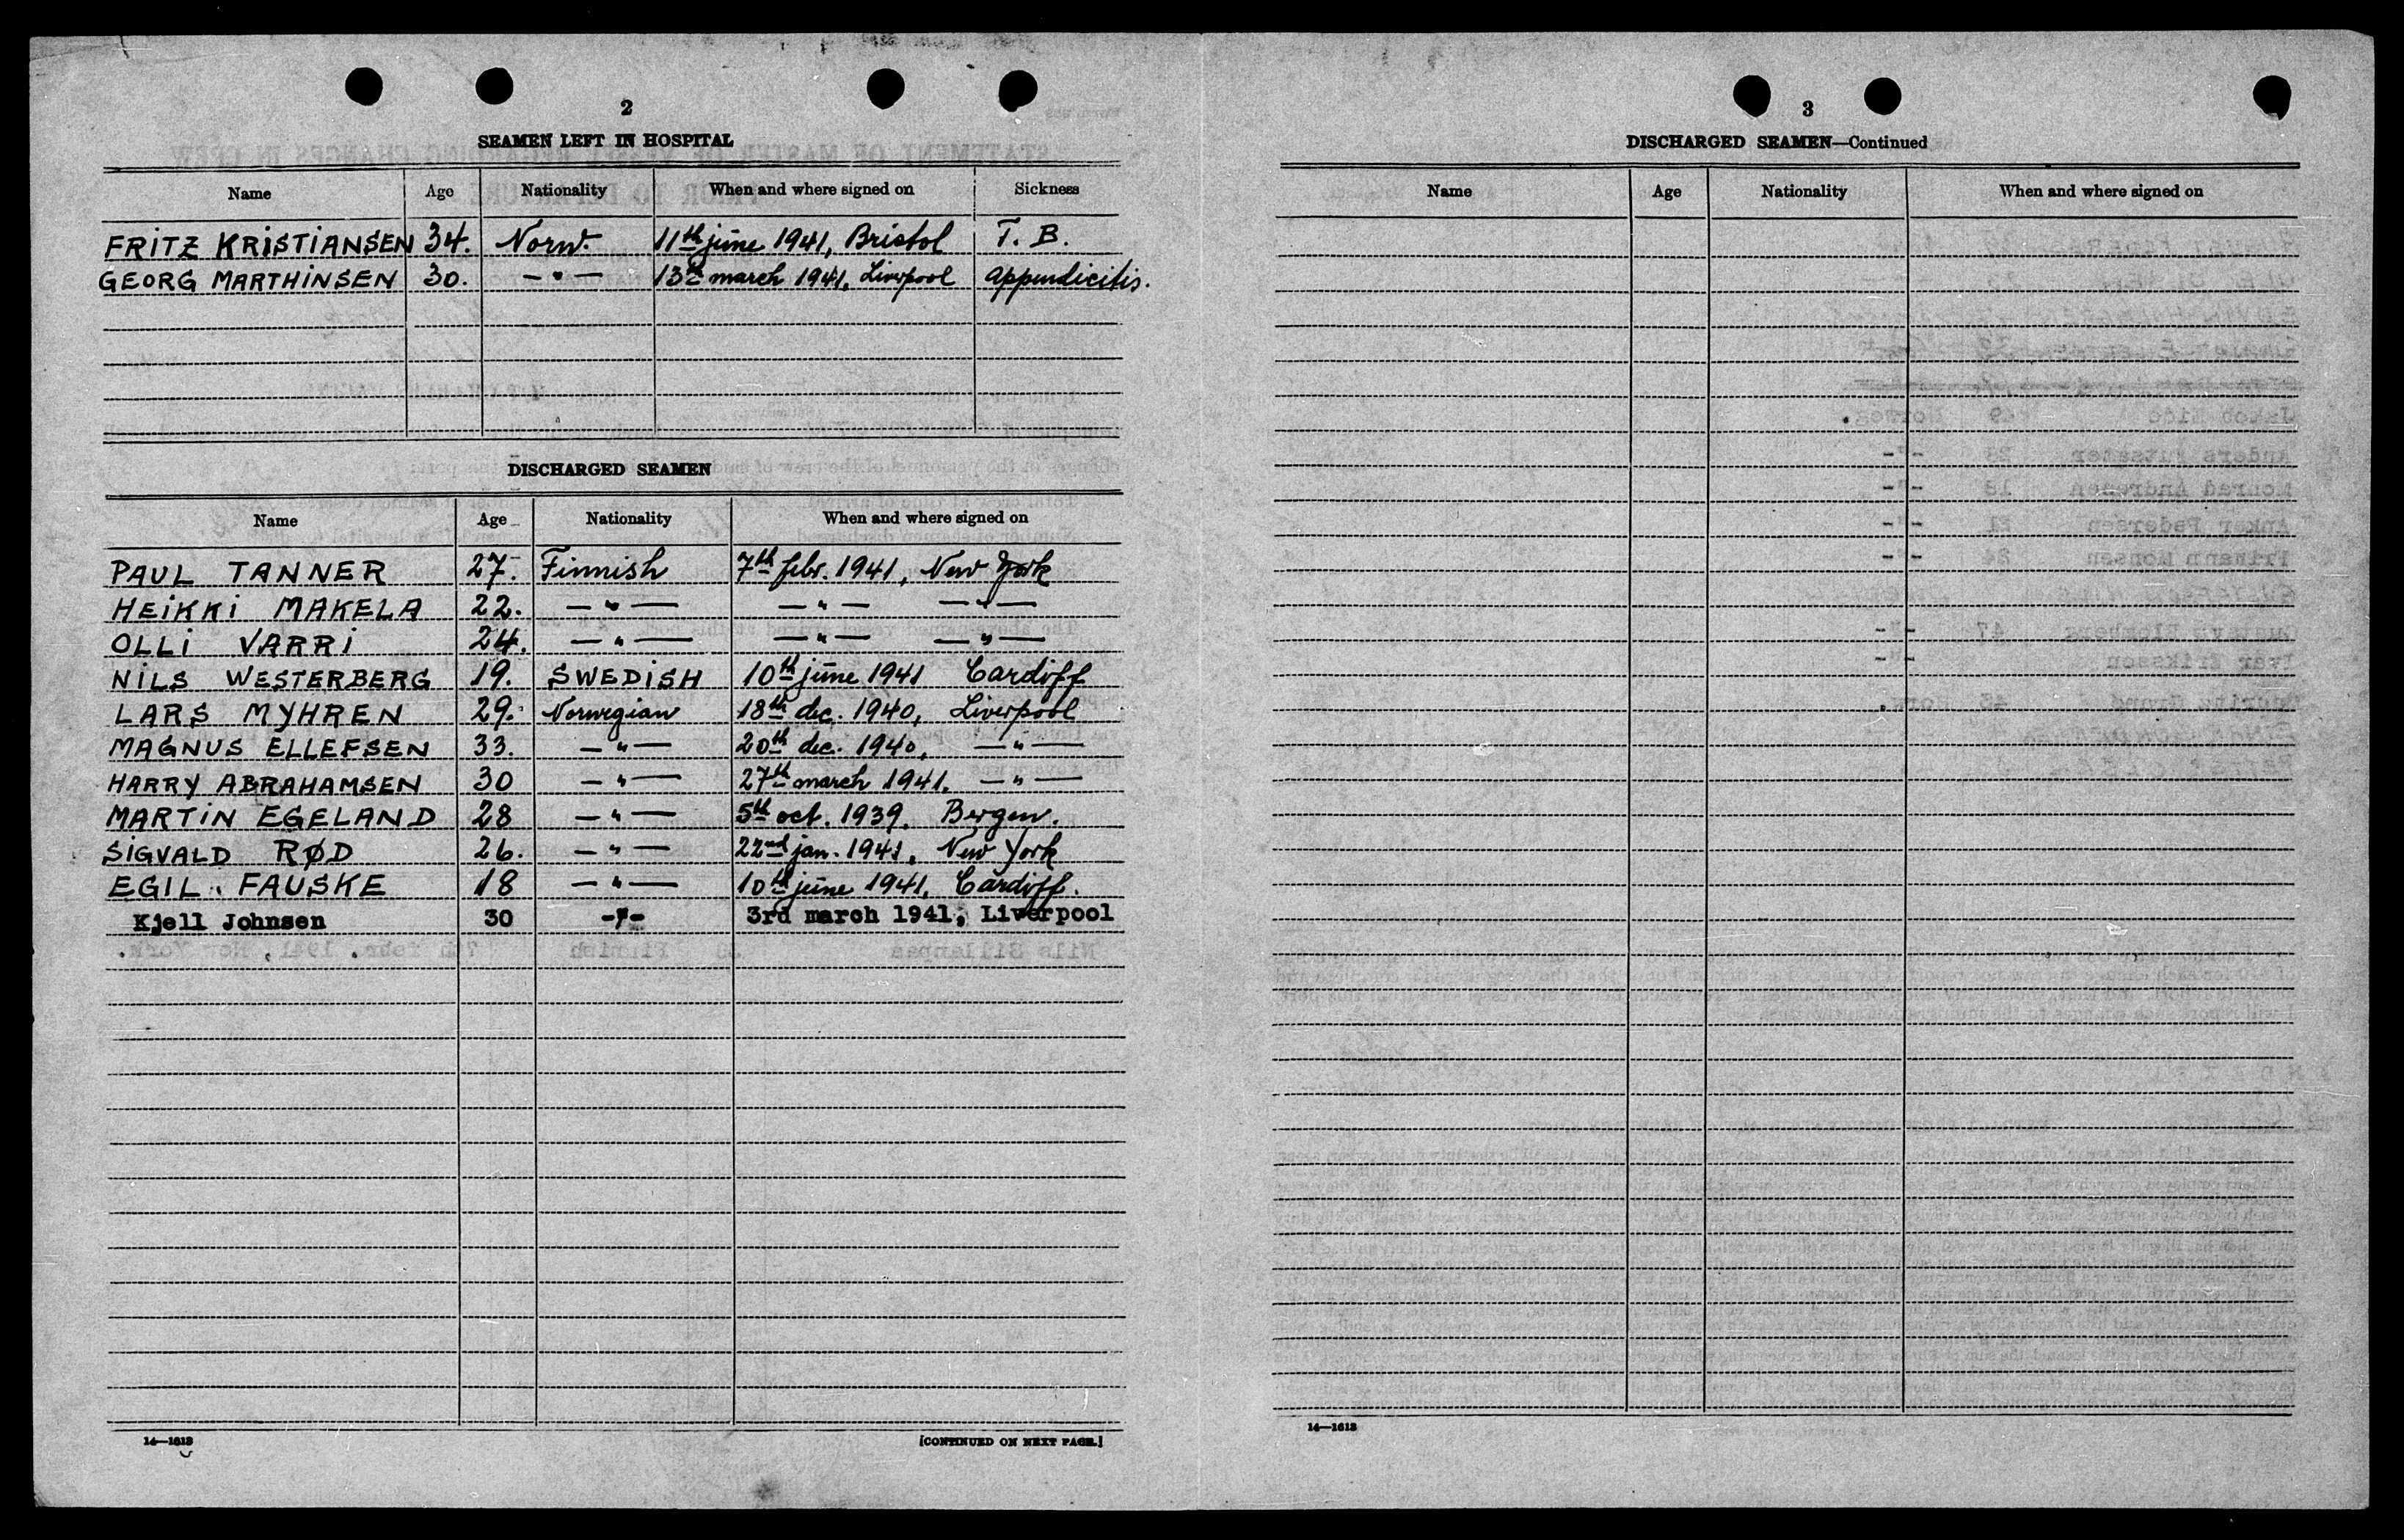 2
SEAMEN LEFT IN HOSPITAL
Name Age Nationality When and where signed on Sickness
FRITZ KRISTIANSEN 34. Norw. 11th june 1941, Bristol T. B.
GEORG MARTHINSEN 30. —"— 13th march 1941, Liverpool appendicitis.
DISCHARGED SEAMEN
Name Age Nationality When and where signed on
PAUL TANNER 27. Finnish 7th febr. 1941, New York
HEIKKI MAKELA 22. —"— —"— —"—
OLLI VARRI 24. —"— —"— —"—
NILS WESTERBERG 19. SWEDISH 10th june 1941 Cardiff
LARS MYHREN 29. Norwegian 18th dec. 1940, Liverpool
MAGNUS ELLEFSEN 33. —"— 20th dec. 1940, —"—
HARRY ABRAHAMSEN 30 —"— 27th march 1941. —"—
MARTIN EGELAND 28 —"— 5th oct. 1939. Bergen.
SIGVALD RØD 26. —"— 22nd jan. 1941, New York
EGIL FAUSKE 18 —"— 10th june 1941. Cardiff.
Kjell Johnsen 30 -"- 3rd march 1941, Liverpool
14—1613
[CONTINUED ON NEXT PAGE.]
3
DISCHARGED SEAMEN—Continued
Name Age Nationality When and where signed on
14—1613